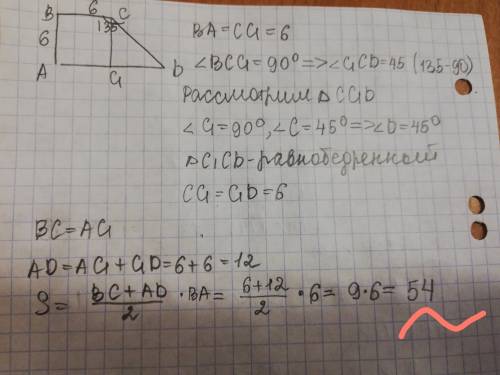 B 6 C
6 135
A G D
BA = CG = 6
∠BCG = 90° => ∠GCD = 45 (135-90)
Рассмотрим △CGD
∠G = 90°, ∠C = 45° => ∠D = 45°
△GCD - равнобедренный
CG = GD = 6
BC = AG
AD = AG + GD = 6 + 6 = 12
S = (BC + AD)/2 · BA = (6 + 12)/2 · 6 = 9 · 6 = 54